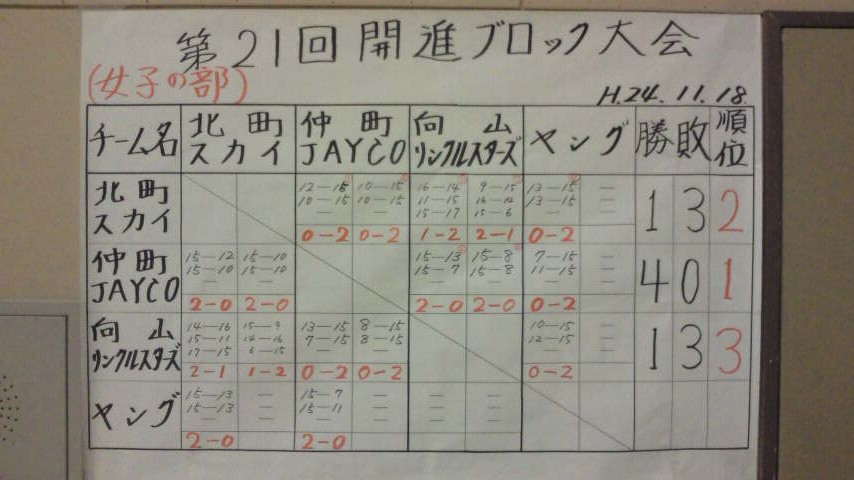 第21回開進ブロック大会
(女子の部)
H.24.11.18.
チーム名 北町スカイ 仲町JAYCO 向山リンクルスターズ ヤング 勝 敗 順位
北町スカイ
12-15 10-15 16-14 9-15 13-15 -
10-15 10-15 11-15 16-14 13-15 -
- - 15-17 15-6 - -
0-2 0-2 1-2 2-1 0-2
1 3 2
仲町JAYCO
15-12 15-10 15-13 15-8 7-15 -
15-10 15-10 15-7 15-8 11-15 -
- - - - - -
2-0 2-0 2-0 2-0 0-2
4 0 1
向山リンクルスターズ
14-16 15-9 13-15 8-15 10-15 -
15-11 14-16 7-15 8-15 12-15 -
17-15 6-15 - - - -
2-1 1-2 0-2 0-2 0-2
1 3 3
ヤング
15-13 - 15-7 - - -
15-13 - 15-11 - - -
- - - - - -
2-0 2-0